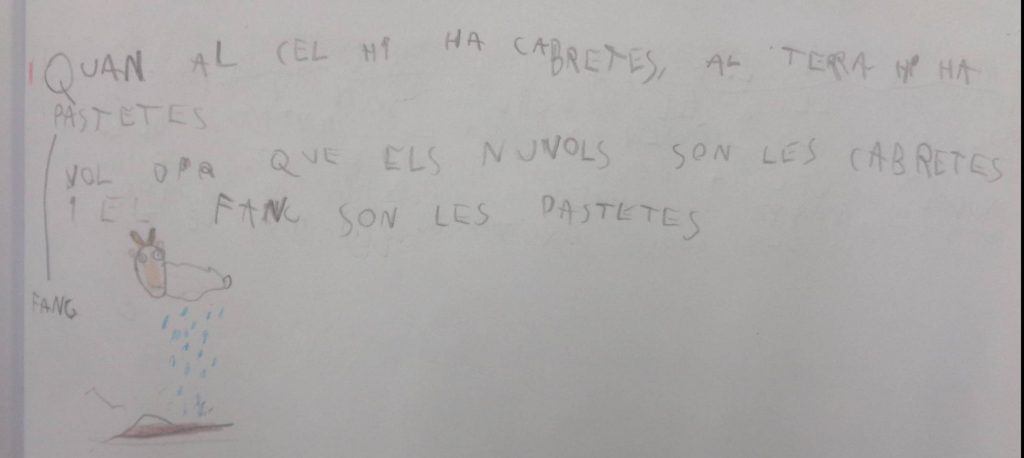 1 QUAN AL CEL HI HA CABRETES, AL TERRA HI HA
PASTETES
VOL DIR QUE ELS NUVOLS SON LES CABRETES
I EL FANC SON LES PASTETES
FANG